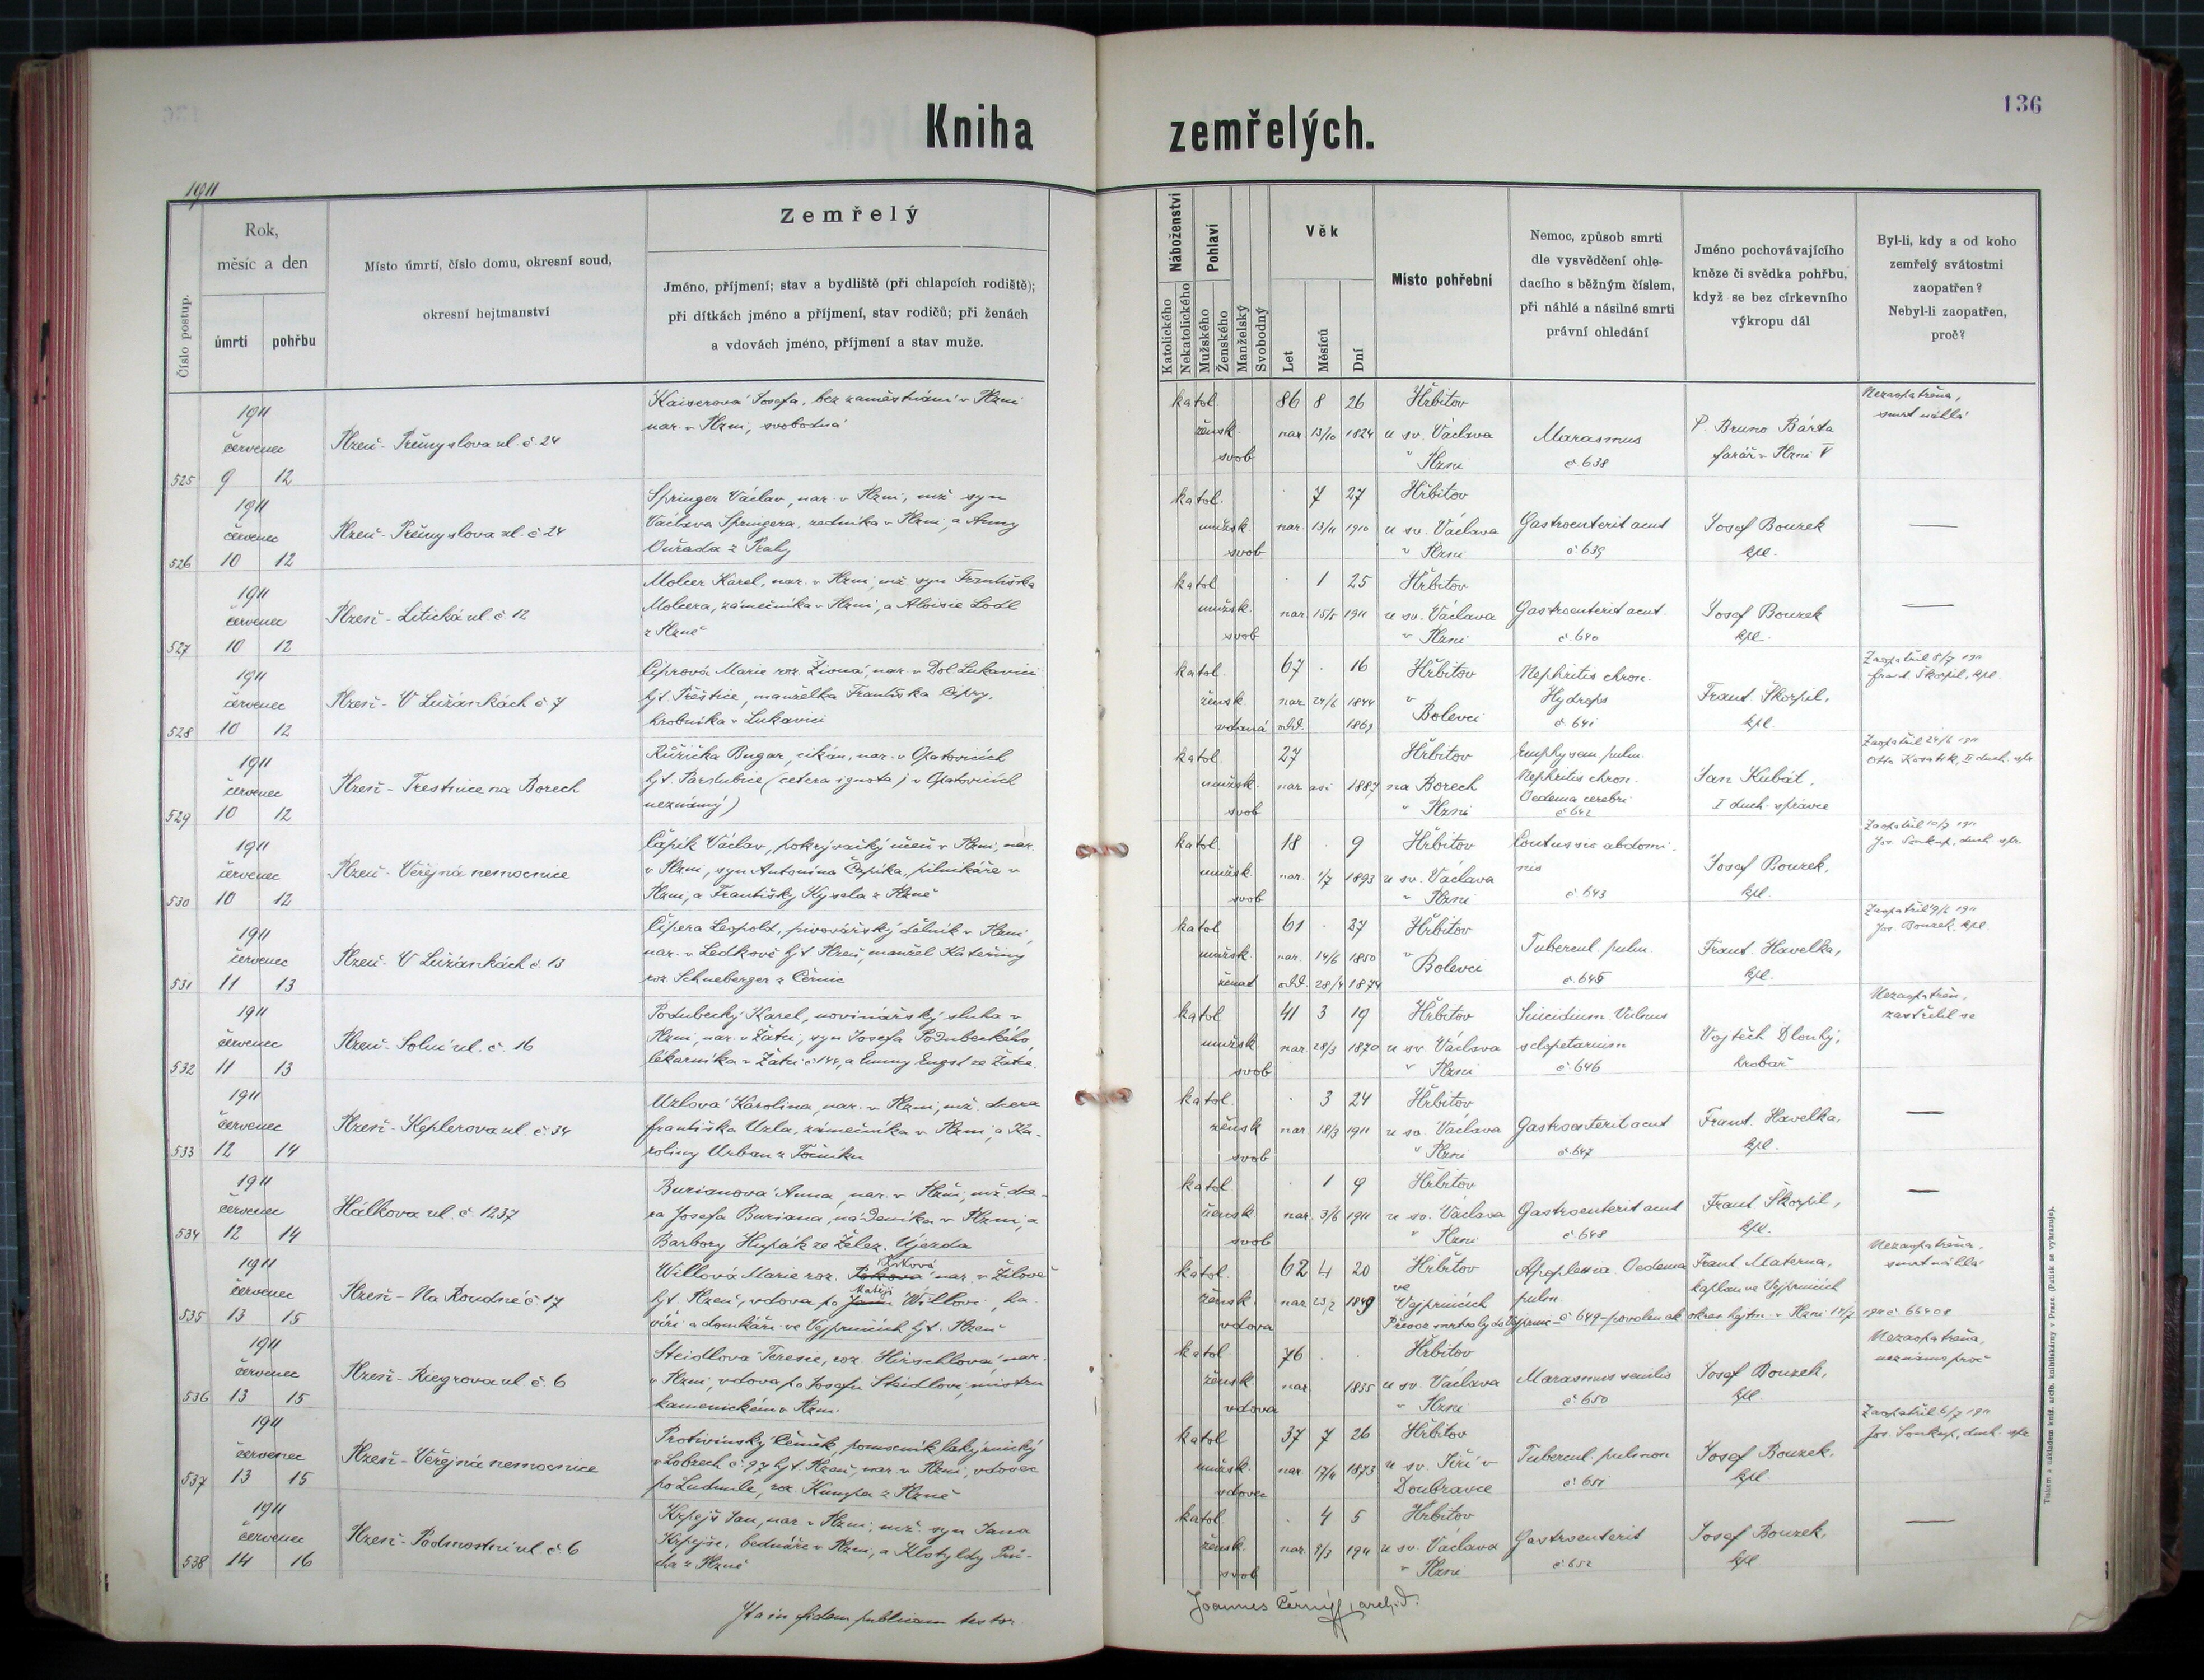 136
Kniha zemřelých.
1911
Číslo postup.
Rok,
měsíc a den
úmrtí
pohřbu
Místo úmrtí, číslo domu, okresní soud,
okresní hejtmanství
Zemřelý
Jméno, příjmení; stav a bydliště (při chlapcích rodiště);
při dítkách jméno a příjmení, stav rodičů; při ženách
a vdovách jméno, příjmení a stav muže.
Náboženství
Katolického
Nekatolického
Pohlaví
Mužského
Ženského
Manželský
Svobodný
Věk
Let
Měsíců
Dní
Místo pohřební
Nemoc, způsob smrti
dle vysvědčení ohle-
dacího s běžným číslem,
při náhlé a násilné smrti
právní ohledání
Jméno pochovávajícího
kněze či svědka pohřbu,
když se bez církevního
výkropu dál
Byl-li, kdy a od koho
zemřelý svátostmi
zaopatřen?
Nebyl-li zaopatřen,
proč?
525
1911
červenec
9 12
Plzeň - Přemyslova ul. č 24
Kaiserová Josefa, bez zaměstnání v Plzni
nar. v Plzni, svobodná
katol. 86 8 26
žensk. nar. 13/10 1824
svob
Hřbitov
u sv. Václava
v Plzni
Marasmus
č 638
P. Bruno Bárta
farář v Plzni V
Nezaopatřena,
smrt náhlá
526
1911
červenec
10 12
Plzeň - Přemyslova ul. č 24
Springer Václav, nar. v Plzni, mž syn
Václava Springera, zedníka v Plzni, a Anny
z Prahy
katol. . 7 27
mužsk. nar. 13/11 1910
svob
Hřbitov
u sv. Václava
v Plzni
Gastroenterit acut
č 639
Josef Bouzek
kpl.
—
527
1911
červenec
10 12
Plzeň - Litická ul. č 12
Molcer Karel, nar. v Plzni, mž. syn Františka
Molcera, zámečníka v Plzni, a Aloisie
z Plzně
katol . 1 25
mužsk. nar 15/5 1911
svob
Hřbitov
u sv. Václava
v Plzni
Gastroenterit acut.
č 640
Josef Bouzek
kpl.
—
528
1911
červenec
10 12
Plzeň - V Lužánkách č 7
Ciprová Marie roz. Živná, nar. v Dol Lukavici
hjt. Přeštice, manželka Františka Cipry,
hrobníka v Lukavici
katol. 67 . 16
žensk. nar 24/6 1844
vdaná odd. 1869
Hřbitov
v
Bolevci
Nephritis chron.
Hydrops
č 641
Frant Škorpil,
kpl.
Zaopatřil 8/7 1911
Frant Škorpil, kpl.
529
1911
červenec
10 12
Plzeň - Trestnice na Borech
Růžička Bugar, cikán, nar. v Opatovicích
hjt. Pardubice (cetera ignota) v Opatovicích
neznámý)
katol. 27
mužsk. nar asi 1887
svob
Hřbitov
na Borech
v Plzni
Emphysem pulm.
Nephritis chron.
Oedema cerebri
č 642
Jan Kubát,
I duch. správce
Zaopatřil 24/6 1911
II duch. spr.
530
1911
červenec
10 12
Plzeň - Veřejná nemocnice
Čapík Václav, pokrývačský učeň v Plzni, nar.
v Plzni, syn Antonína Čapíka, pilnikáře v
Plzni, a Františky Kysela z Plzně
katol. 18 . 9
mužsk. nar. 1/7 1893
svob
Hřbitov
u sv. Václava
v Plzni
Contussio abdomi-
nis
č 643
Josef Bouzek,
kpl.
Zaopatřil 10/7 1911
Jos. Soukup, duch. spr.
531
1911
červenec
11 13
Plzeň - V Lužánkách č. 13
Čipera Leopold, pivovářský dělník v Plzni,
nar. v Ledkově hjt Plzeň, manžel Kateřiny
roz. Schneberger z Černic
katol 61 . 27
mužsk. nar. 14/6 1850
ženat odd. 28/4 1874
Hřbitov
v
Bolevci
Tubercul pulm.
č 645
Frant. Havelka,
kpl.
Zaopatřil 9/6 1911
Jos. Bouzek, kpl.
532
1911
červenec
11 13
Plzeň - Solní ul. č. 16
Podubecký Karel, novinářský sluha v
Plzni, nar. v Žatci, syn Josefa Podubeckého,
lékárníka v Žatci č 144, a Emmy Engst ze Žatce.
katol 41 3 19
mužsk. nar 28/3 1870
svob
Hřbitov
u sv. Václava
v Plzni
Suicidium. Vulnus
sclopetarium
č 646
Vojtěch Dlouhý,
hrobař
Nezaopatřen,
zastřelil se
533
1911
červenec
12 14
Plzeň - Keplerova ul. č. 34
Uzlová Karolina, nar. v Plzni, mž. dcera
Františka Uzla, zámečníka v Plzni, a Ka-
roliny Urban z Točníku
katol. . 3 24
žensk nar. 18/3 1911
svob
Hřbitov
u sv. Václava
v Plzni
Gastroenterit acut
č 647
Frant. Havelka,
kpl.
—
534
1911
červenec
12 14
Hálkova ul. č. 1237
Burianová Anna, nar. v Plzni, mž. dce-
ra Josefa Buriana, nádeníka v Plzni, a
Barbory Hupák ze Želez. Újezda
katol. . 1 9
žensk. nar. 3/6 1911
svob
Hřbitov
u sv. Václava
v Plzni
Gastroenterit acut
č 648
Frant. Škorpil,
kpl.
—
535
1911
červenec
13 15
Plzeň - Na Roudné č 17
Willová Marie roz. nar. v Žilově
hjt. Plzeň, vdova po Matěji Willovi, ha-
víři a domkáři ve Vejprnicích hjt. Plzeň
katol. 62 4 20
žensk. nar 23/2 1849
vdova
Hřbitov
ve
Vejprnicích
Apoplexia. Oedema
pulm.
Převoz mrtvoly do Vejprnic č 649 povolen ok okres. hejtm. v Plzni 14/7 1911 č. 66408
Frant. Materna,
kaplan ve Vejprnicích
Nezaopatřena,
smrt náhlá
536
1911
červenec
13 15
Plzeň - Riegrova ul. č. 6
Steidlová Terezie, roz. Hirschlová, nar.
v Plzni, vdova po Josefu Steidlovi, mistru
kamenickém v Plzni.
katol. 76 . .
žensk. nar. 1835
vdova
Hřbitov
u sv. Václava
v Plzni
Marasmus senilis
č 650
Josef Bouzek,
kpl.
Nezaopatřena,
neznámo proč
537
1911
červenec
13 15
Plzeň - Veřejná nemocnice
Protivínský Čeněk, pomocník lakýrnický
v Lobzech č. 97 hjt. Plzeň, nar. v Plzni, vdovec
po Ludmile, roz. Kumpa z Plzně
katol 37 7 26
mužsk. nar. 17/11 1873
vdovec
Hřbitov
u sv. Jiří v
Doubravce
Tubercul. pulmon
č 651
Josef Bouzek,
kpl.
Zaopatřil 6/7 1911
Jos. Soukup, duch. spr.
538
1911
červenec
14 16
Plzeň - Podmostní ul. č 6
Krpejš Jan, nar v Plzni, mž. syn Jana
Krpejše, bednáře v Plzni, a Klotyldy Prů-
cha z Plzně
katol. . 4 5
žensk. nar. 9/3 1911
svob
Hřbitov
u sv. Václava
v Plzni
Gastroenterit
č 652
Josef Bouzek,
kpl
—
Ita in fidem publicam testor.
Joannes Černý, arch.d.
Tiskem a nákladem kníž. arcib. knihtiskárny v Praze. (Patisk se vyhrazuje).